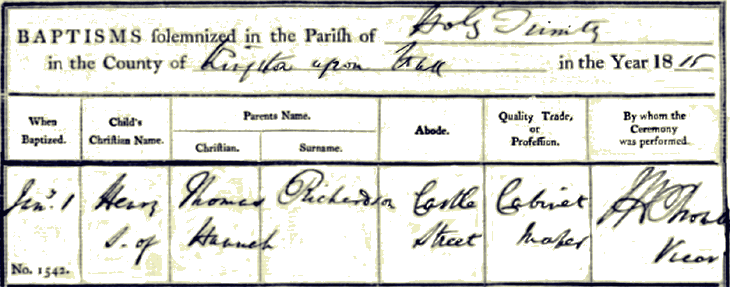 BAPTISMS solemnized in the Parish of Holy Trinity
in the County of Kingston upon Hull in the Year 1815
When Baptized. Child's Christian Name. Parents Name. Christian. Surname. Abode. Quality Trade, or Profession. By whom the Ceremony was performed.
Jany. 1 Henry Thomas Richardson Castle Cabinet
S. of Hannah Street Maker Vicar
No. 1542.